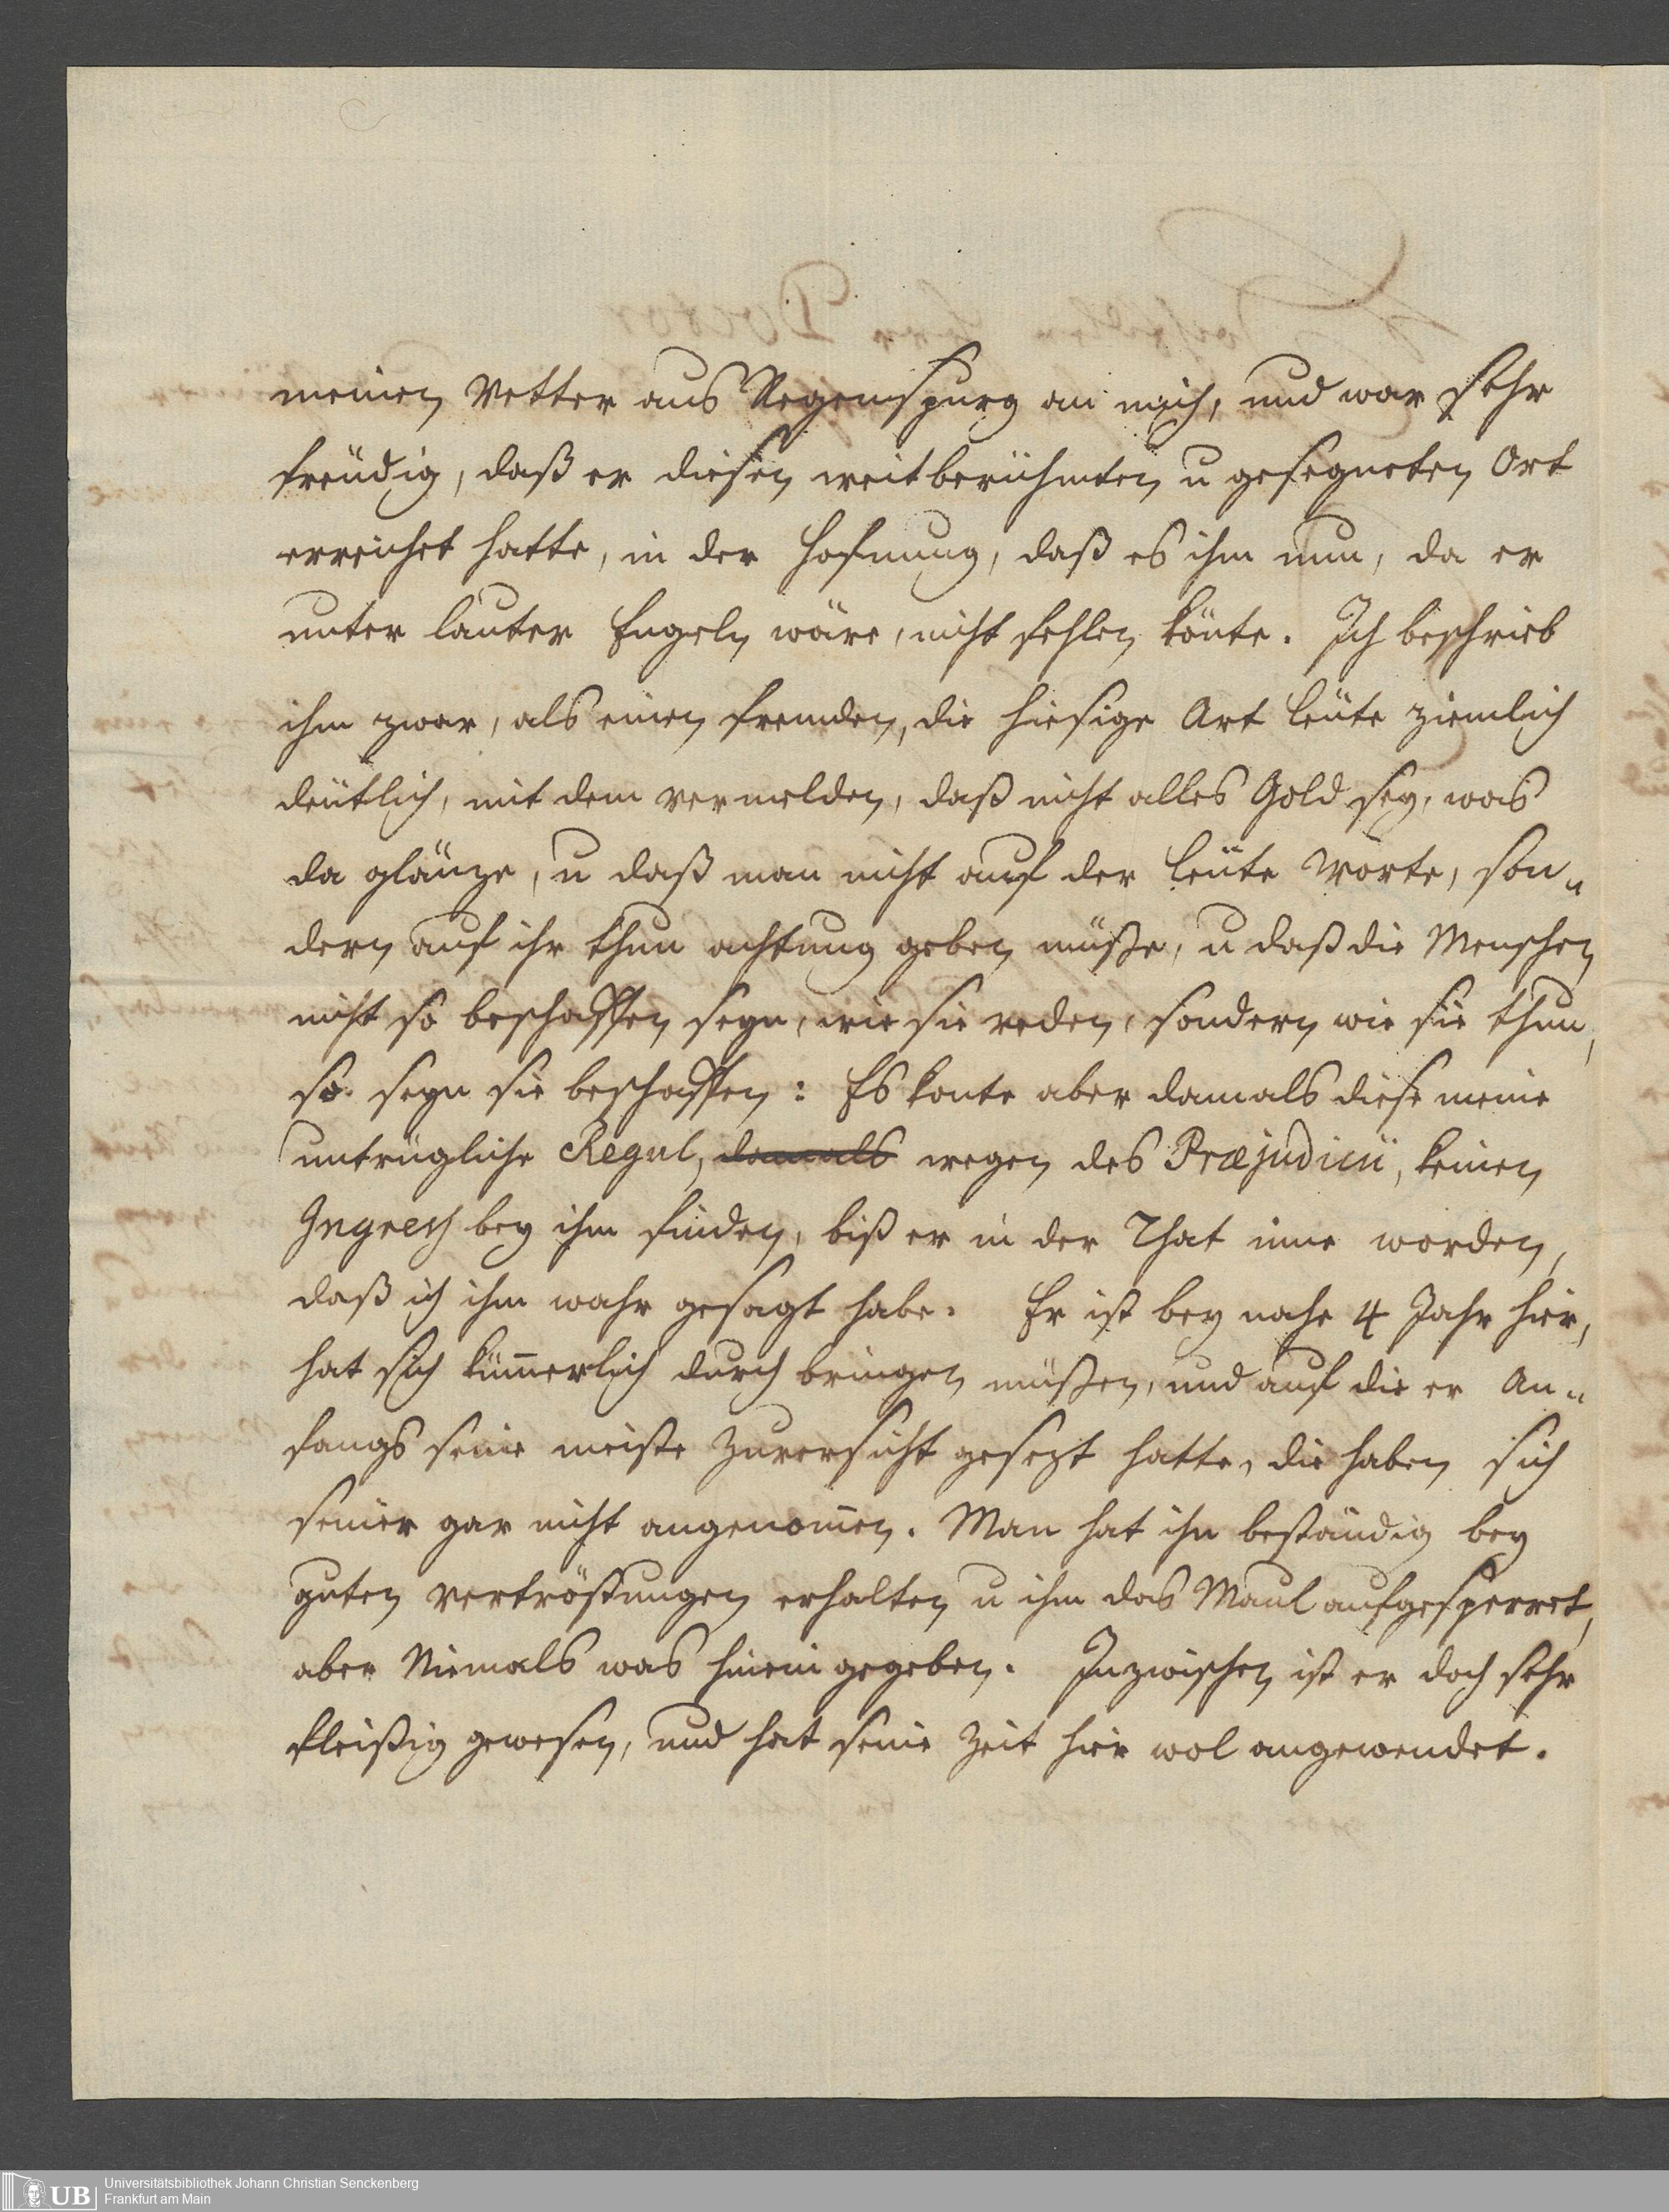 meinen Vetter aus Regenspurg an mich, und war sehr
freüdig, daß er diesen weitberühmten u gesegneten Ort
erreichet hatte, in der Hofnung, daß es ihm nun, da er
unter lauter Engeln wäre, nicht fehlen könte. Ich beschrieb
ihm zwar, als einen fremden, die hiesige Art Leüte ziemlich
deütlich, mit dem vermelden, daß nicht alles Gold sey, was
da glänze, u daß man nicht auf der Leüte Worte, son„
dern auf ihr thun achtung geben müße, u daß die Menschen
nicht so beschaffen seyn, wie sie reden, sondern wie sie thun,
so seyn sie beschaffen: Es konte aber damals diese meine
untrügliche Regul, damals wegen des Præjudicii, keinen
Ingress bey ihm finden, biß er in der That inne worden,
daß ich ihm wahr gesagt habe. Er ist bey nahe 4 Jahr hier,
hat sich kümerlich durch bringen müßen, und auf die er An„
fangs seine meiste Zuversicht gesezt hatte, die haben sich
seiner gar nicht angenomen. Man hat ihn beständig bey
guten vertröstungen erhalten u ihm das Maul aufgesperret,
aber Niemals was hinein gegeben. Inzwischen ist er doch sehr
fleißig gewesen, und hat seine Zeit hier wol angewendet.
UB
Universitätsbibliothek Johann Christian Senckenberg
Frankfurt am Main